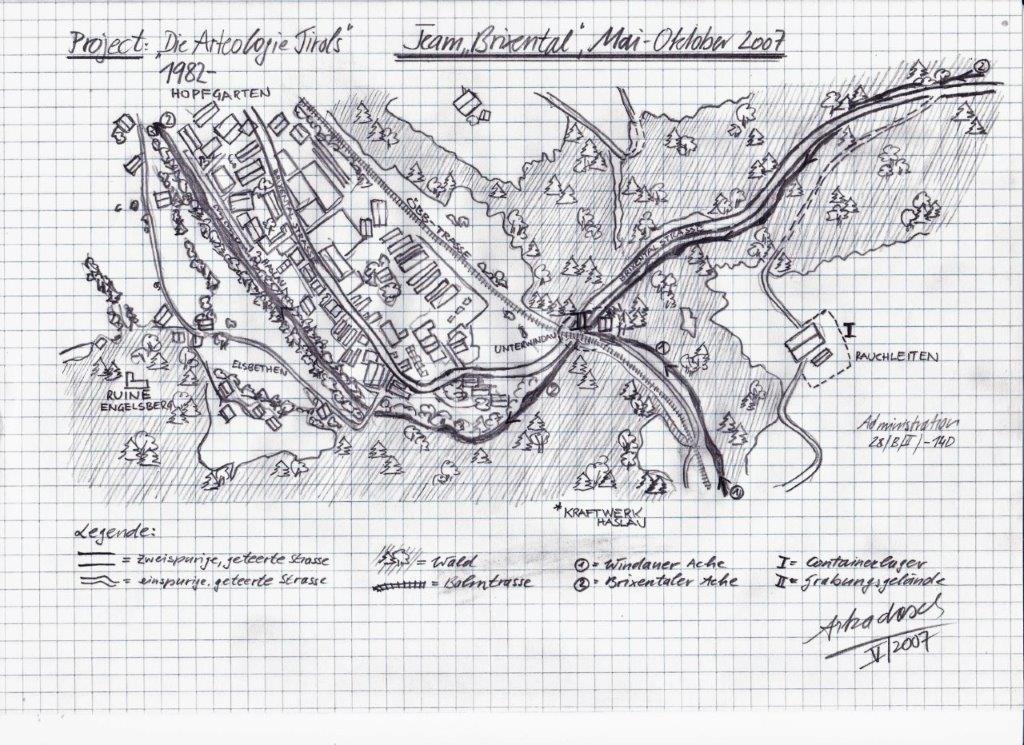 Project: „Die Arteologie Tirols"
1982-
Team „Brixental", Mai-Oktober 2007
HOPFGARTEN
②
②
ÖBB-TRASSE
BRIXENTALSTRASSE
STRASSE
II
UNTERWINDAU
①
I
RAUCHLEITEN
ELSBETHEN
②
RUINE
ENGELSBERG
Administration
①
*KRAFTWERK
HASLAU
Legende:
= zweispurige, geteerte Strasse
= einspurige, geteerte Strasse
= Wald
= Bahntrasse
① = Windauer Ache
② = Brixentaler Ache
I = Containerlager
II = Grabungsgelände
V/2007